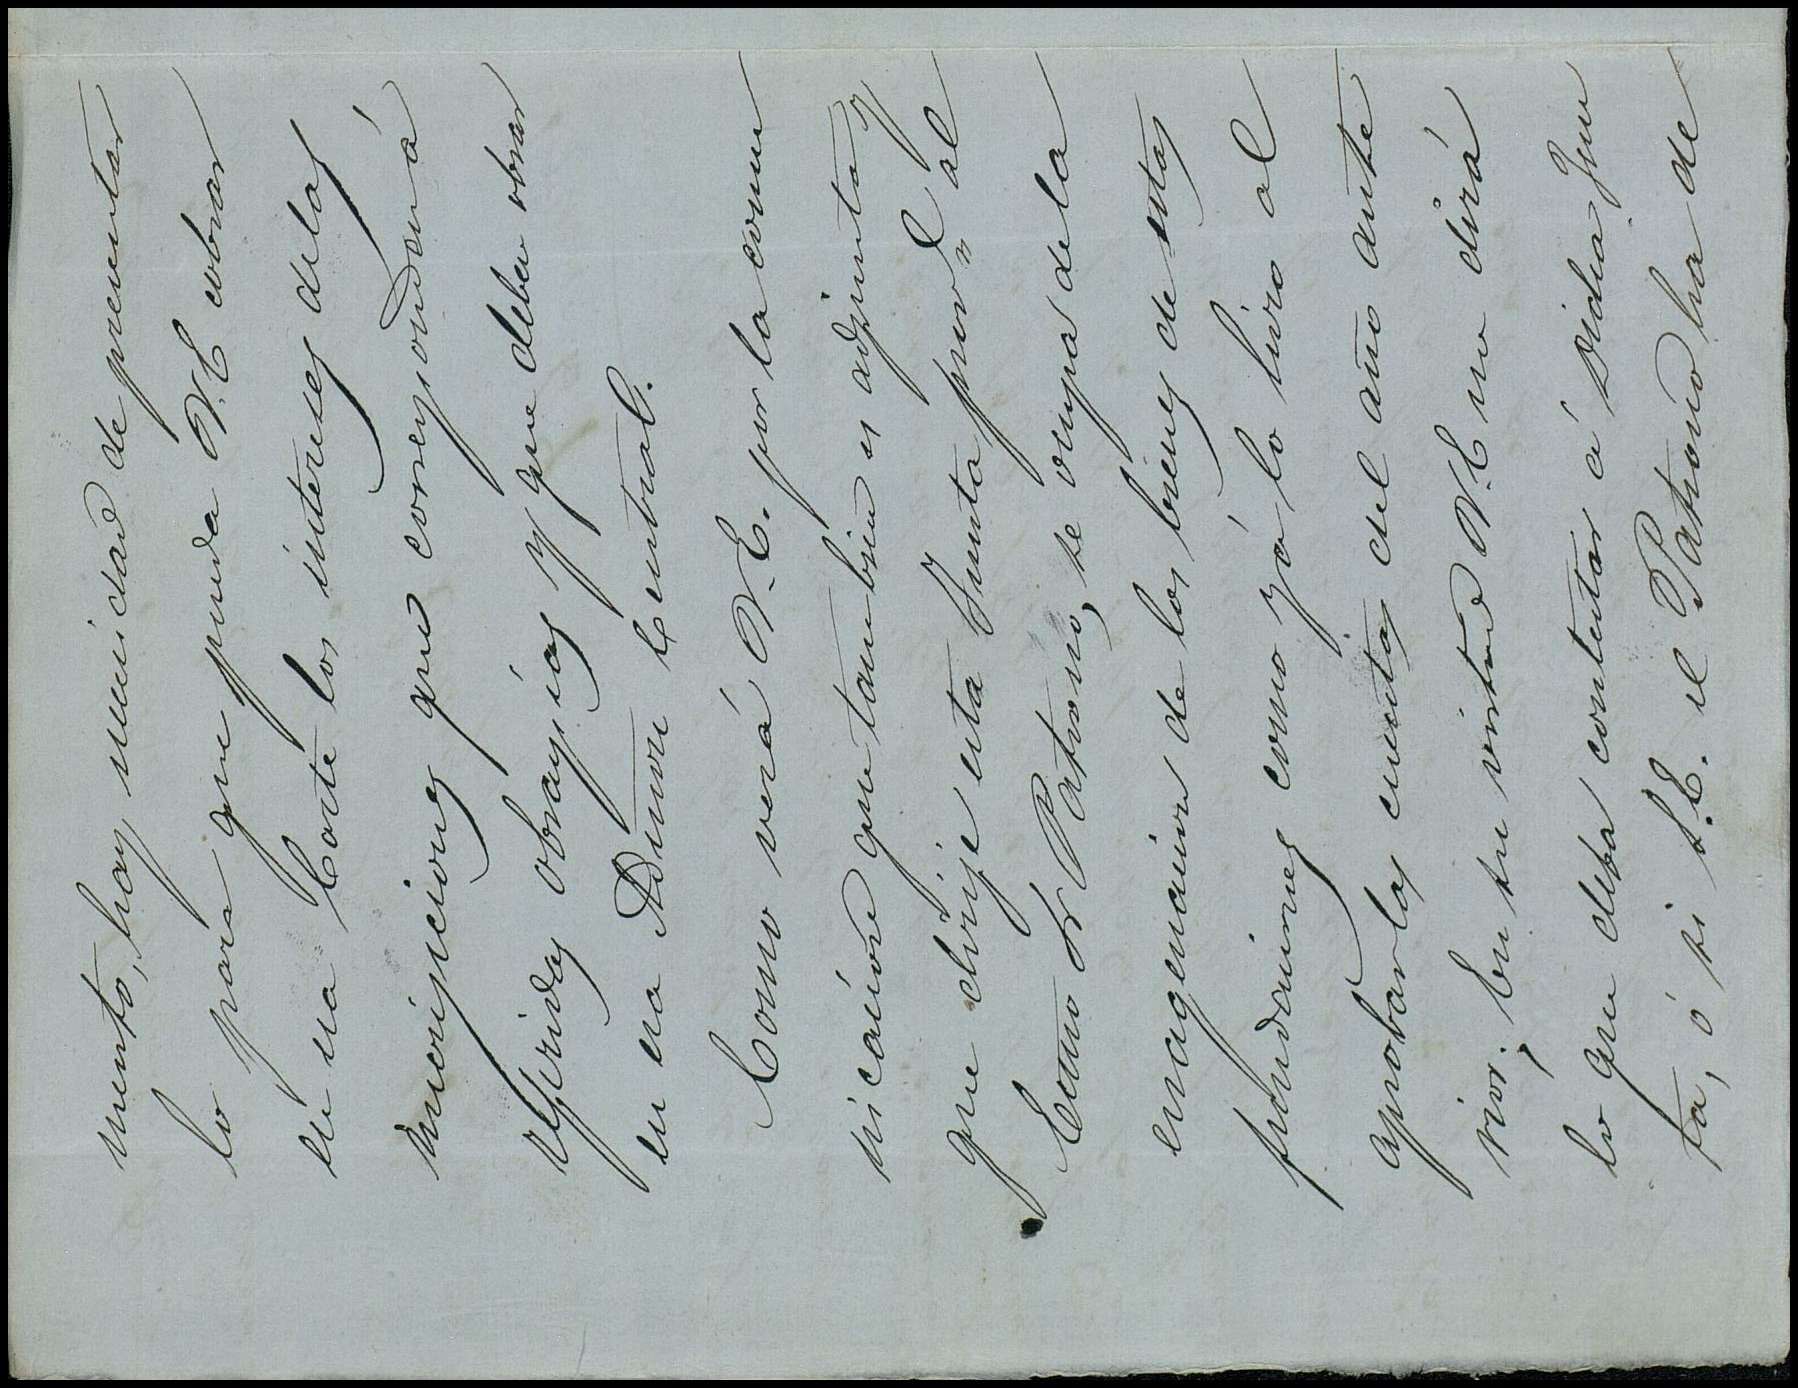 mento, hay necesidad de presentar
lo para que pueda V.E cobrar
en esa Corte los intereses delas
inscripciones que corresponden á
referidas obras pias y que deben obrar
en esa Admon Central.
Como verá V.E. por la comu
nicación que tambien es adjunta y
que dirije esta Junta provl al
Exmo Sr Patrono, se ocupa de la
enagenacion de los bienes de estas
fundaciones como yá lo hizo al
aprobar las cuentas del año ante
rior; En su virtud V.E me dirá
lo que deba contestar á dicha Jun
ta, ó si S.E. el Patrono ha de